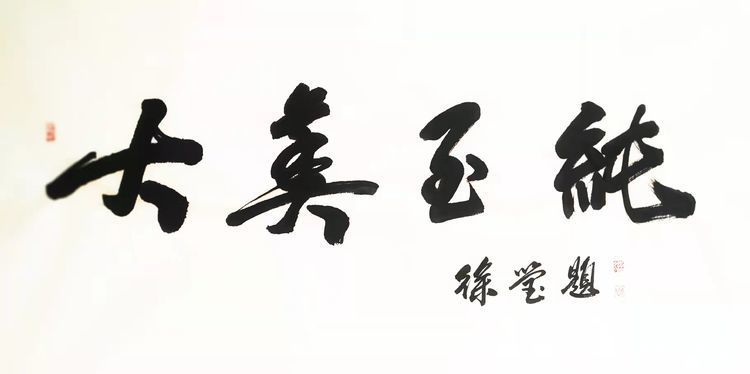 大美至純
徐瑩題